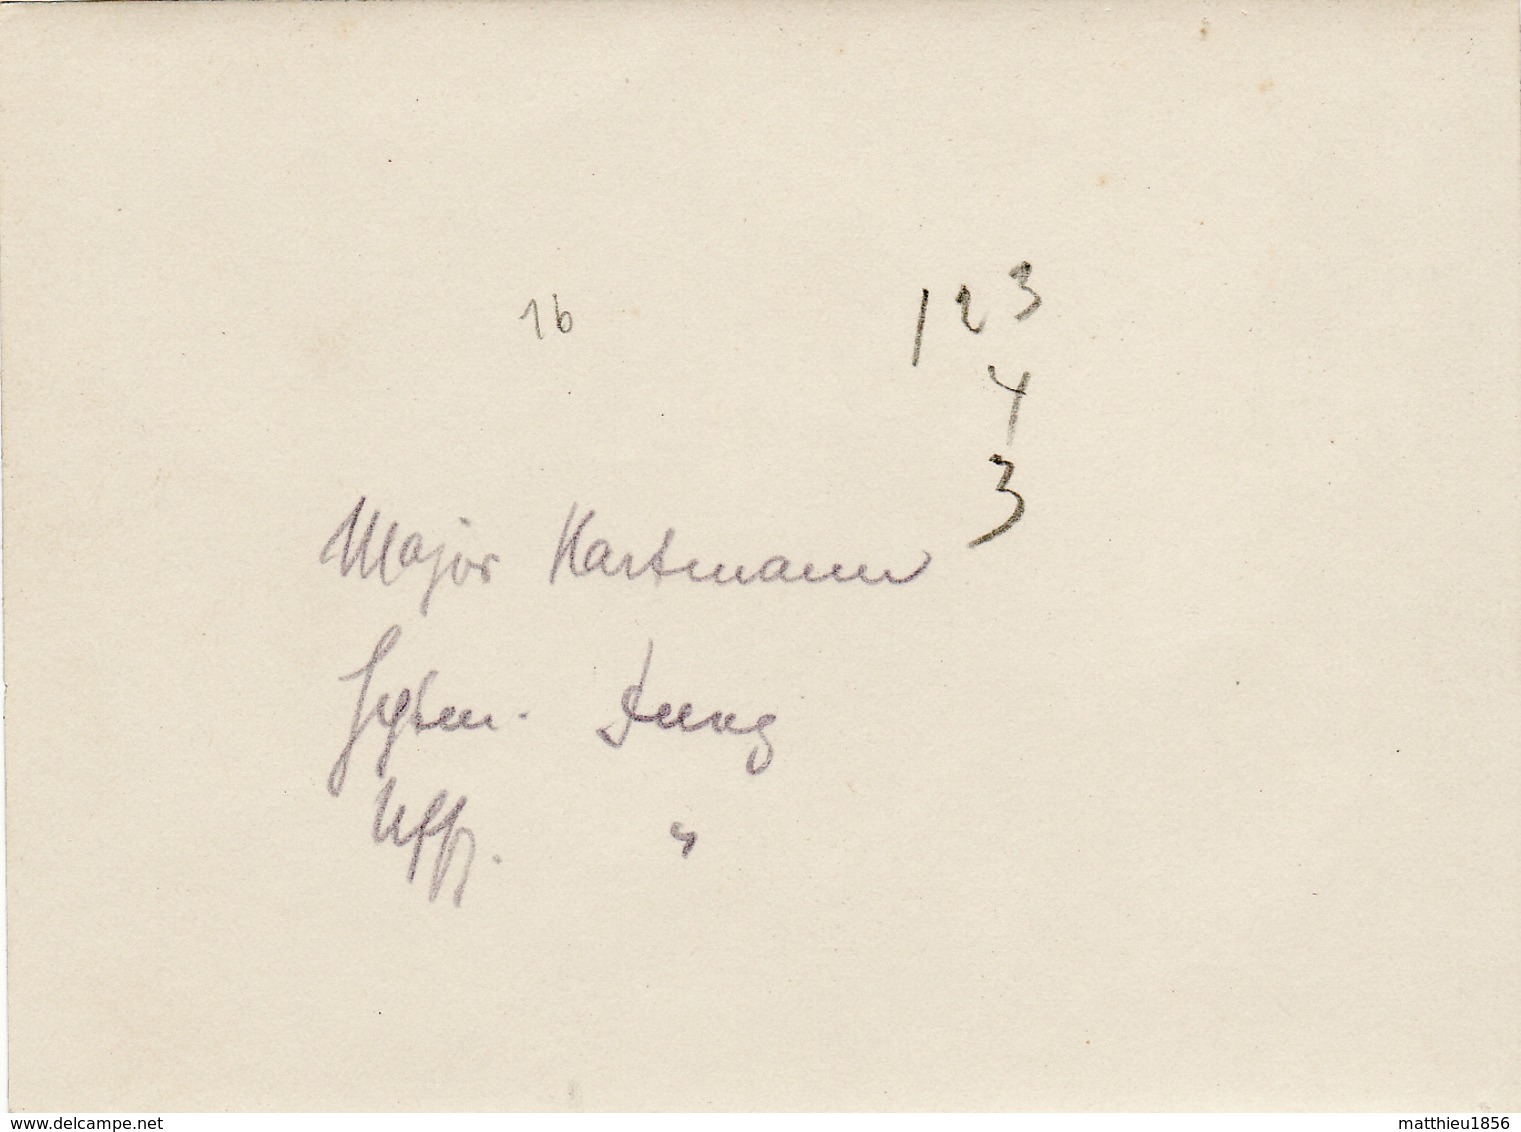 16
1 2 3
4
3
Major Hartmann
Hptm. Dung
Uffz. "
www.delcampe.net
matthieu1856